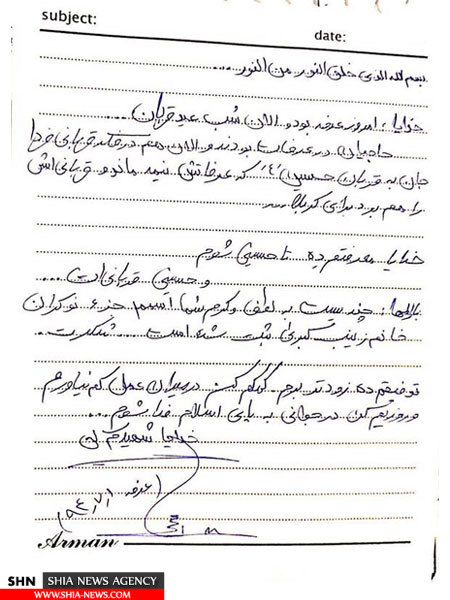 subject:
date:
بسم الله الذی خلق النور من النور...
خدایا، امروز عرفه بود و الان شب عید قربان...
حاجیان در عرفات بودند و الان هم در فکر قربانی فردا
جان به قربان حسین (ع) که عرفاتش نیمه ماند و قربانی‌اش
را هم برد برای کربلا...
خدایا معرفتم ده تا حسینی شوم
و حسینی قربانی‌ات....
بارالها، چند است به لطف و کرم شما اسمم جزء نوکران
خانم زینب کبری ثبت شده است... شکرت..
توفیقم ده زودتر بروم کمکم کن در میدان عمل کم نیاورم
و روزیم کن در جوانی به پای اسلام فدا شوم...
خدایا شهیدم کن
عرفه ۹۴٫۷٫۱
Arman
SHN SHIA NEWS AGENCY
WWW.SHIA-NEWS.COM